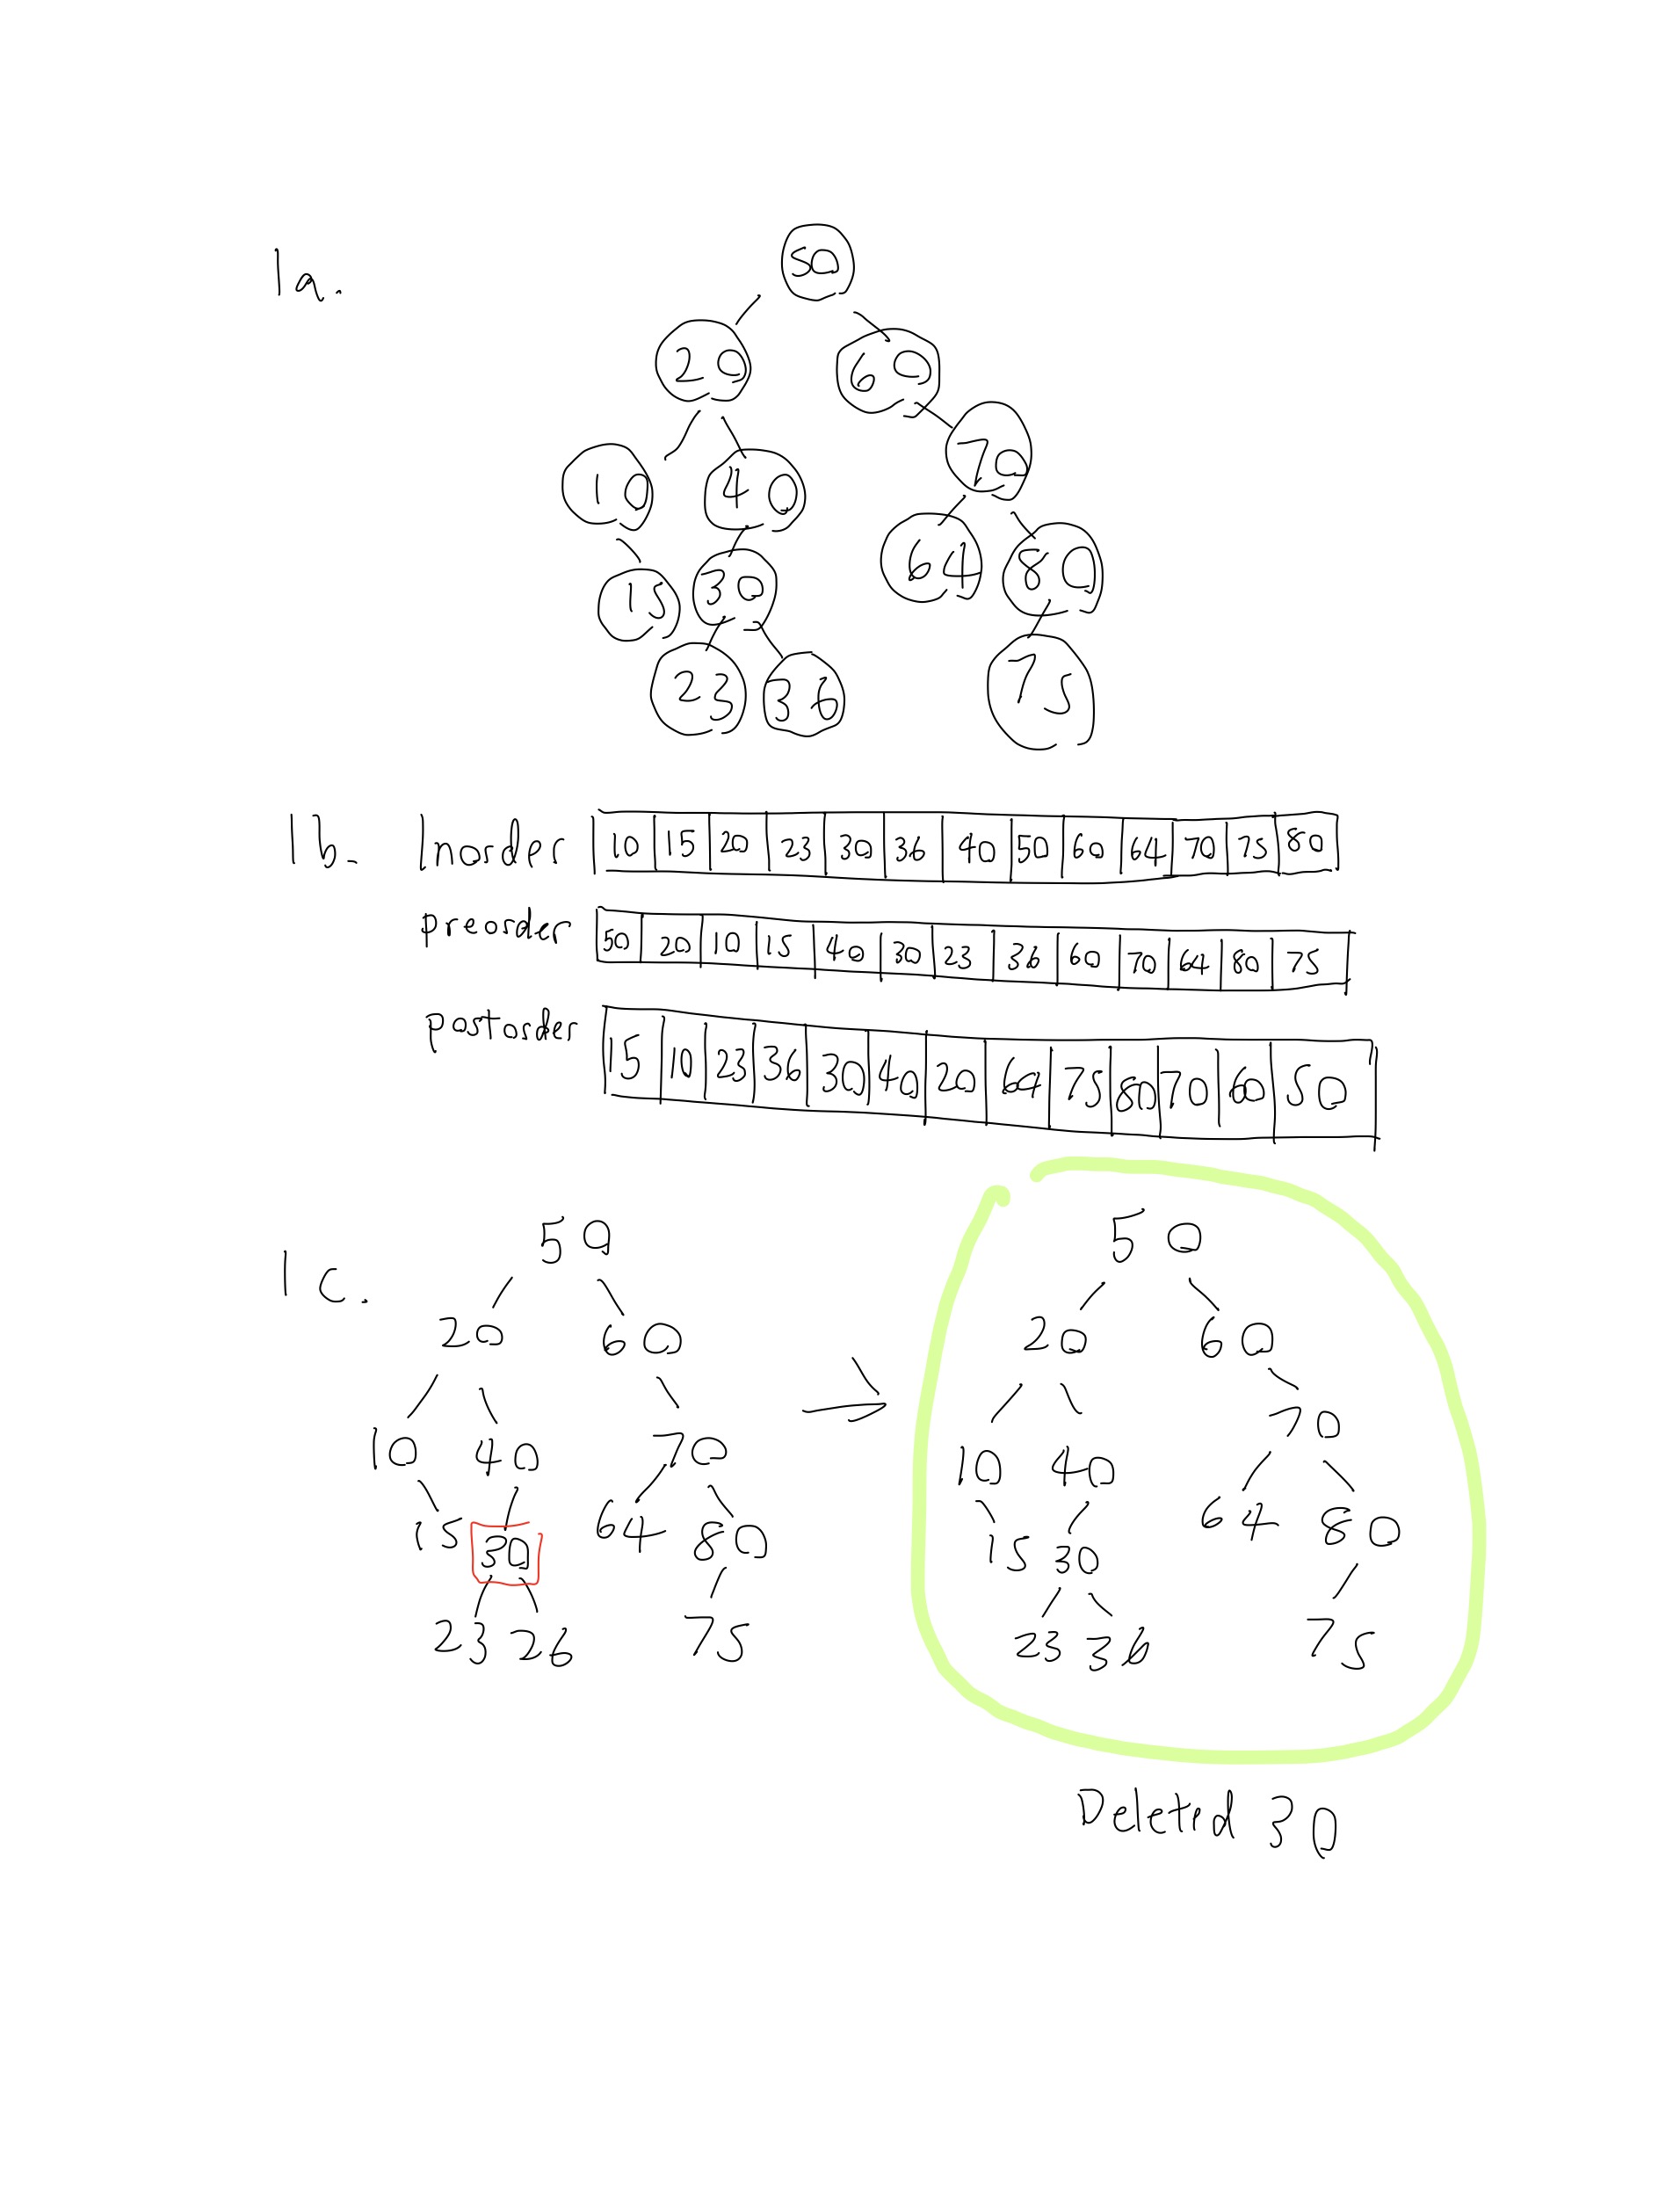 1a.
50
20 60
10 40 70
15 30 64 80
23 36 75
1b. Inorder 10 15 20 23 30 36 40 50 60 64 70 75 80
preorder 50 20 10 15 40 30 23 36 60 70 64 80 75
postorder 15 10 23 36 30 40 20 64 75 80 70 60 50
1c.
50
20 60
10 40 70
15 30 64 80
23 26 75
50
20 60
10 40 70
15 30 64 80
23 36 75
Deleted 30